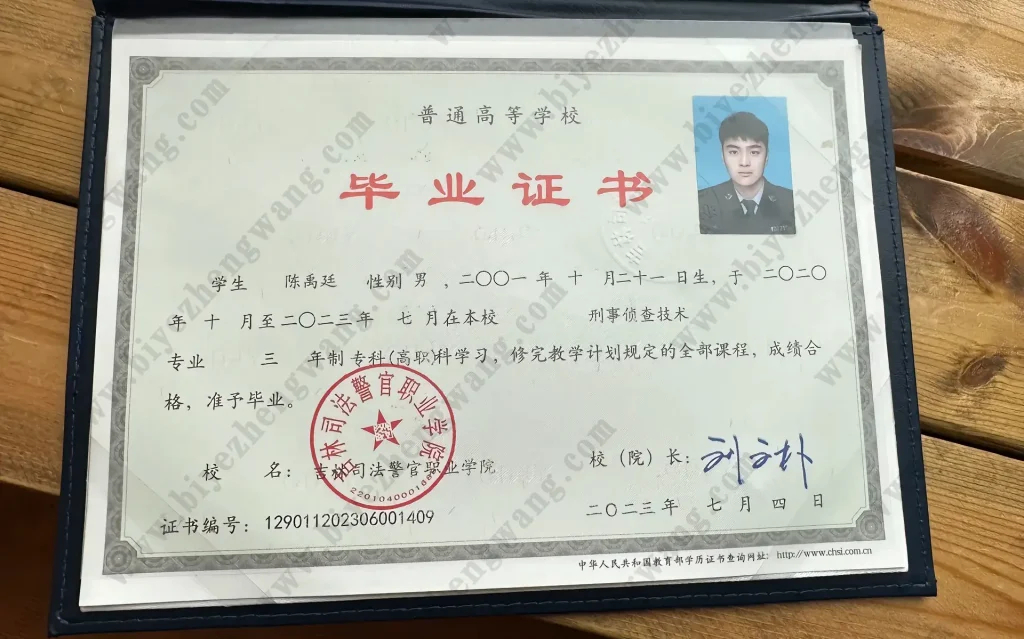 普通高等学校
毕业证书
学生 陈禹廷 性别 男 ，二〇〇一 年 十 月二十一 日生，于 二〇二〇
年 十 月至二〇二三年 七 月在本校 刑事侦查技术
专业 三 年制 专科(高职)科学习，修完教学计划规定的全部课程，成绩合
格，准予毕业。
吉林司法警官职业学院
校 名：吉林司法警官职业学院 校（院）长：
二〇二三年 七 月 四 日
证书编号：129011202306001409
中华人民共和国教育部学历证书查询网址：http://www.chsi.com.cn
www.biyezhengwang.com